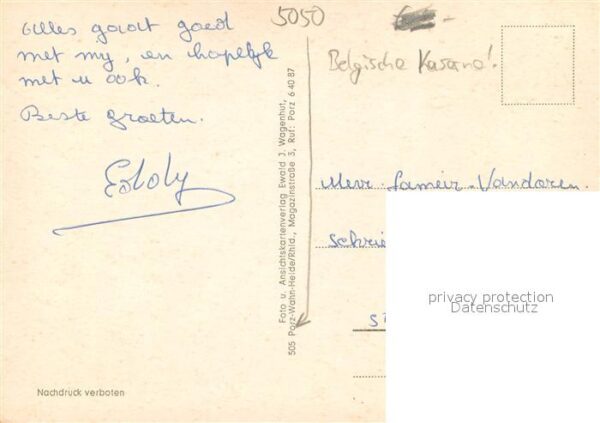 Alles gaat goed
met my, en hopelijk
met u ook.
Beste groeten.
5050
Belgische Kaserne!
Foto u. Ansichtskartenverlag Ewald J. Wagenhut,
505 Porz-Wahn-Heide/Rhld., Magazinstraße 3, Ruf: Porz 6 40 87
Mevr. Lameir-Vandoren.
Schrie
privacy protection
Datenschutz
Nachdruck verboten